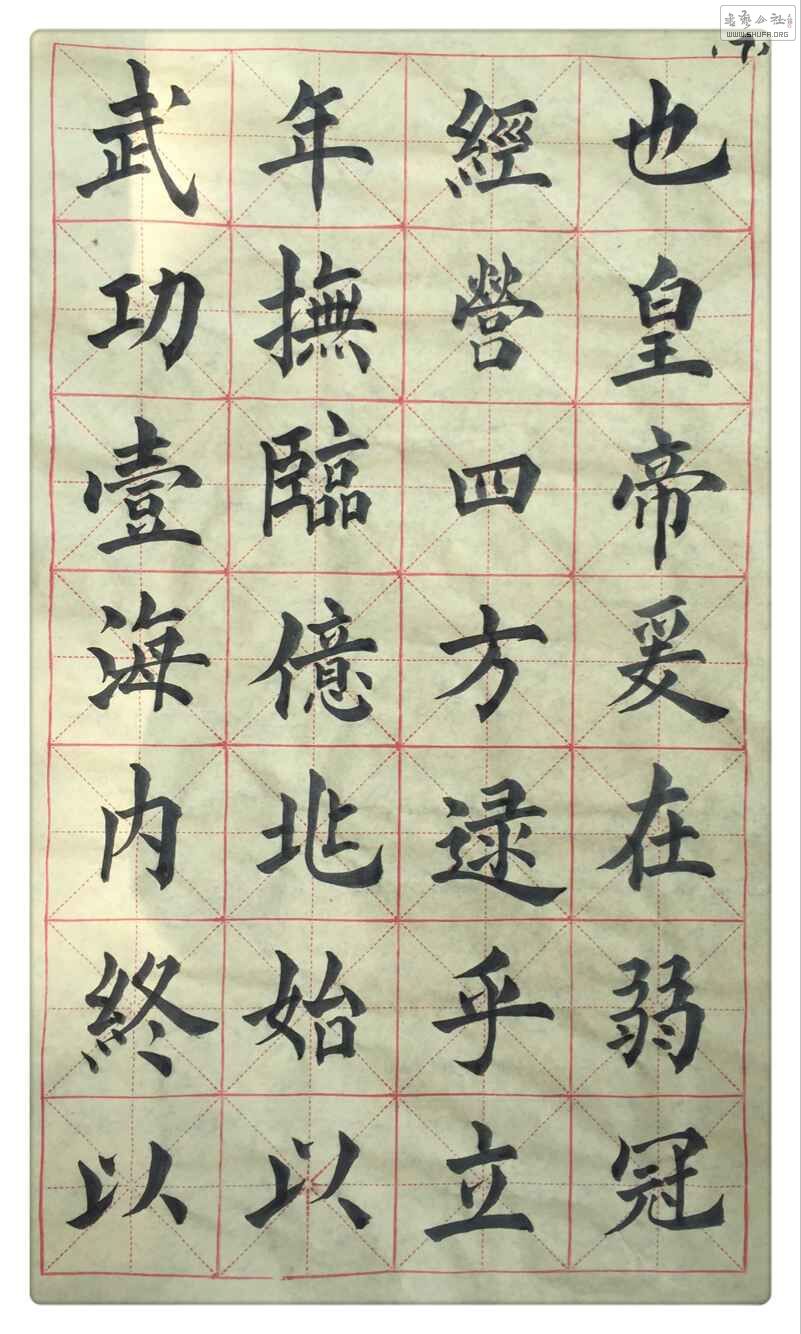 书艺公社
WWW.SHUFA.ORG
也皇帝爰在弱冠
經營四方逮乎立
年撫臨億兆始以
武功壹海内終以